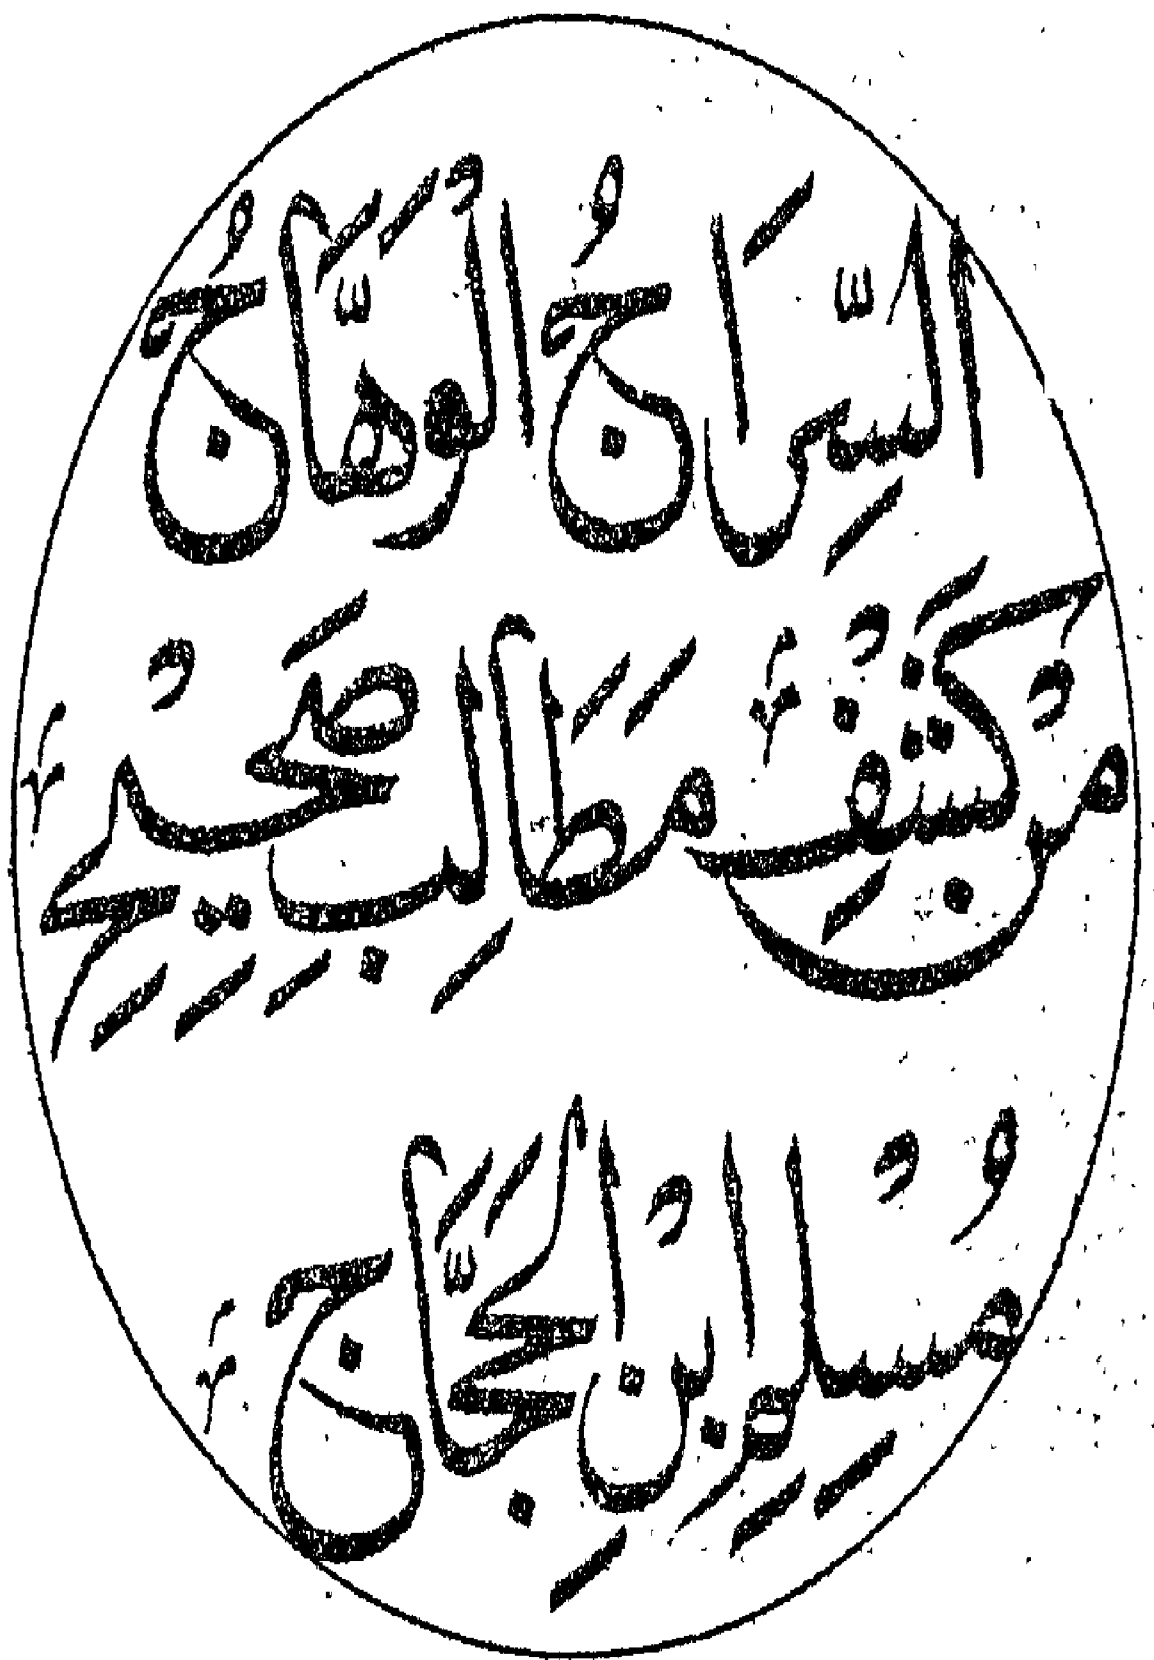 السِّرَاجُ الْوَهَّاجُ
مِنْ كَشْفِ مَطَالِبِ صَحِيحِ
مُسْلِمِ ابْنِ الْحَجَّاجِ